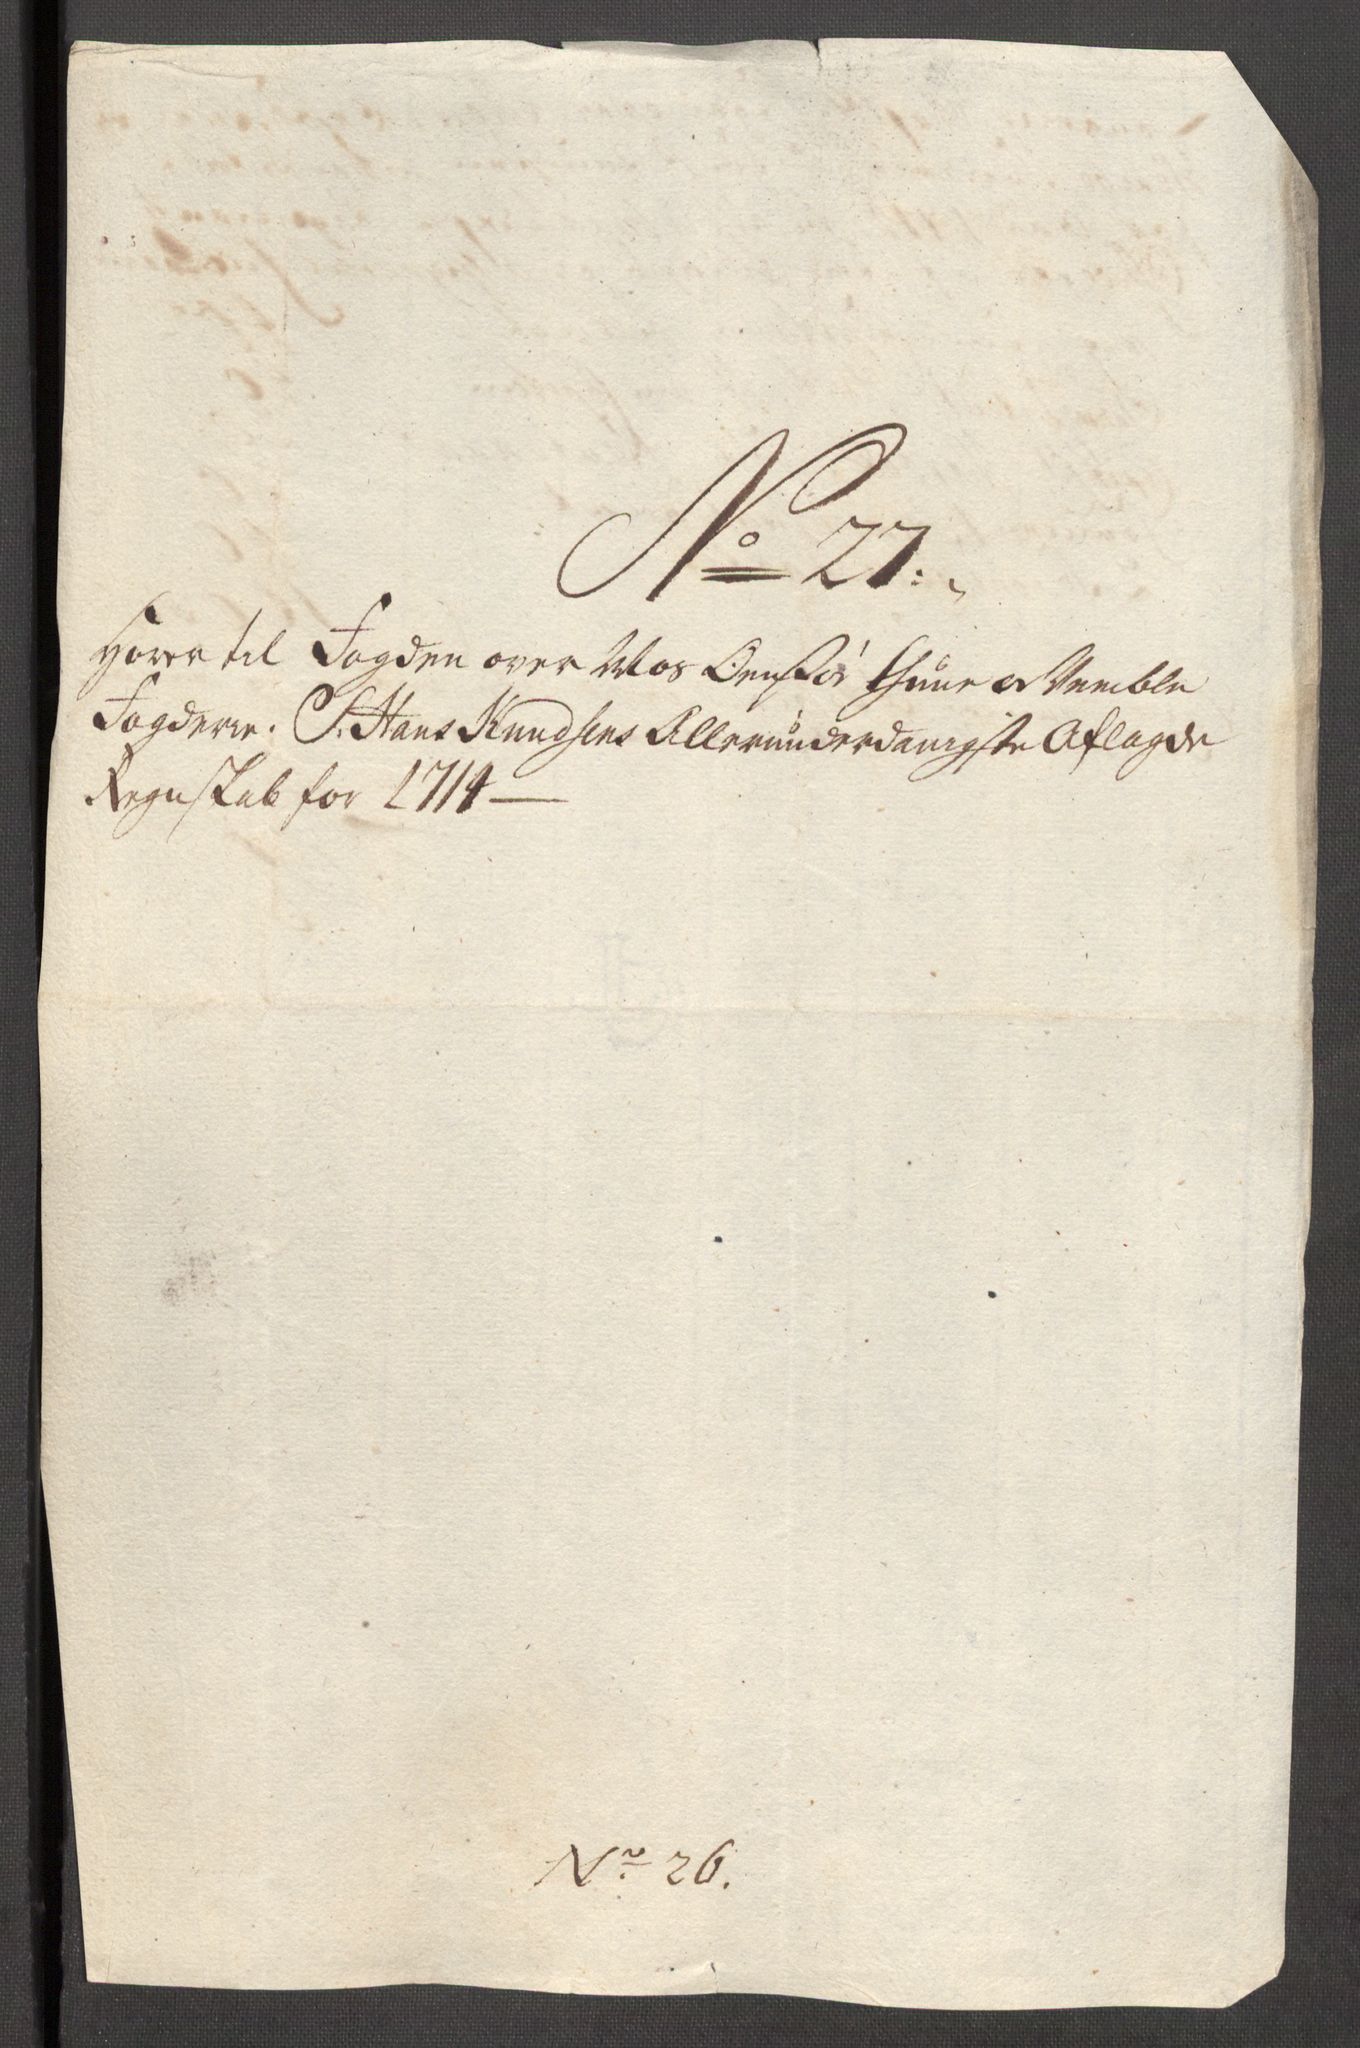 No 27.
Hører til Fogden over Mos Onsøe Thune & Vemble
Fogderie. Sr. Hans Knudsens Allerunderdanigste Aflagde
Regnskab for 1714
No. 26.